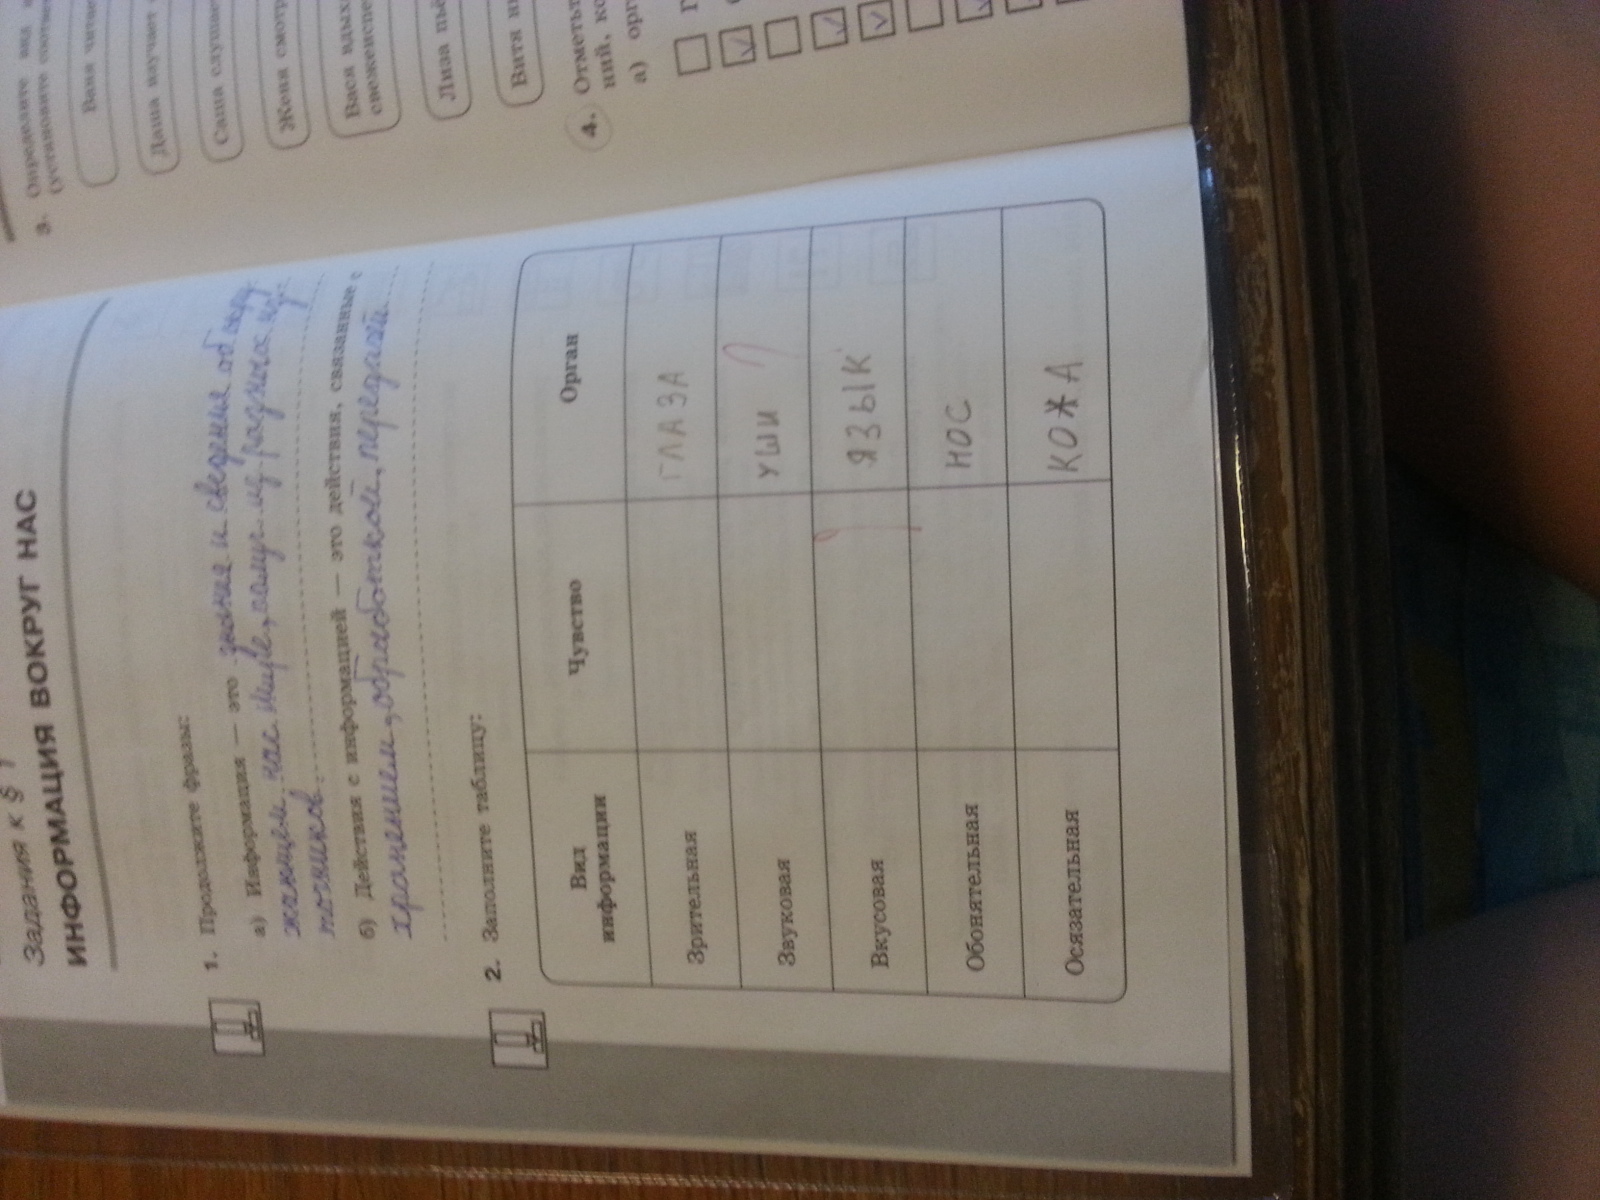 Задания к § 1
ИНФОРМАЦИЯ ВОКРУГ НАС
1. Продолжите фразы:
а) Информация — это знания и сведения об окру-
жающем нас мире, получ. из разных ис-
точников
б) Действия с информацией — это действия, связанные с
хранением, обработкой, передачей
2. Заполните таблицу:
Вид информации Чувство Орган
Зрительная ГЛАЗА
Звуковая УШИ
Вкусовая ЯЗЫК
Обонятельная НОС
Осязательная КОЖА
3. Определите вид
Ваня читает
Даша изучает
Саша слушает
Женя смотр
Вася вдых
свежеиспе
Лиза пь
Витя
4. Отметьт
ний, ко
а) орг